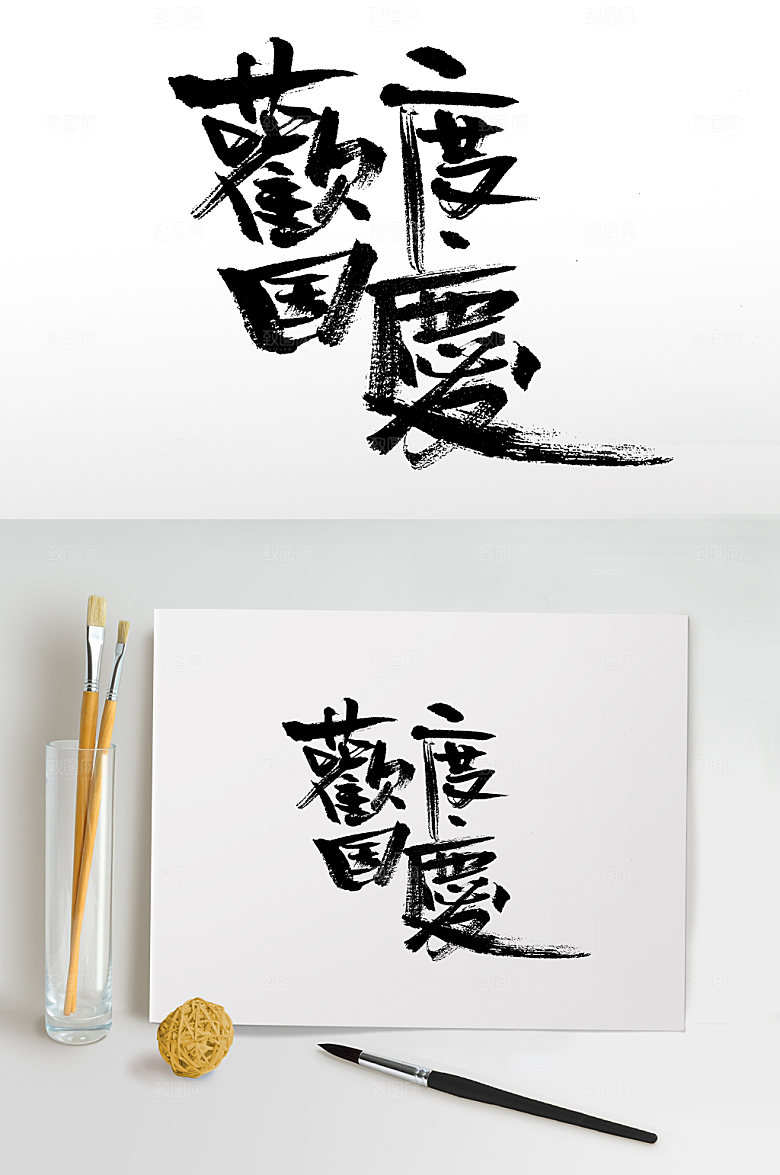 歡度
国慶
歡度
国慶